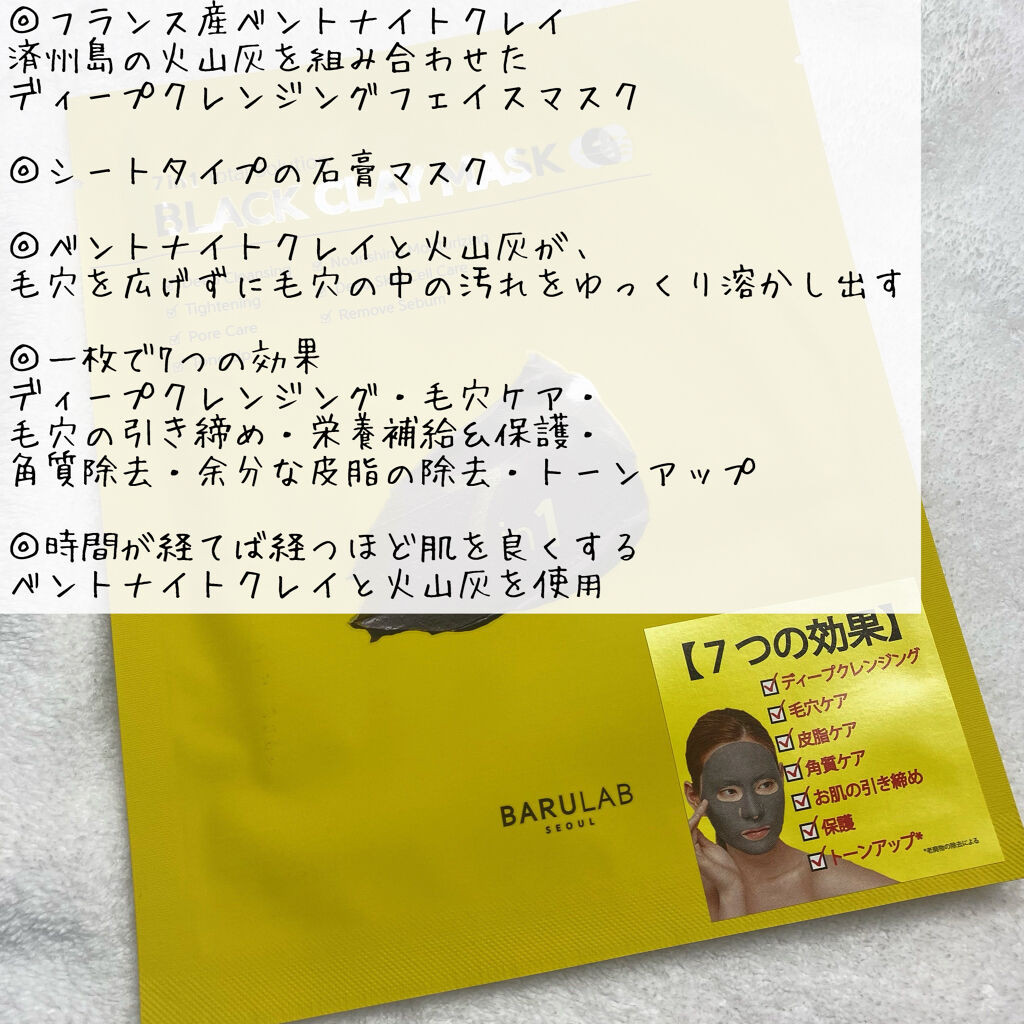 ◎フランス産ベントナイトクレイ
済州島の火山灰を組み合わせた
ディープクレンジングフェイスマスク
◎シートタイプの石膏マスク
◎ベントナイトクレイと火山灰が、
毛穴を広げずに毛穴の中の汚れをゆっくり溶かし出す
◎一枚で7つの効果
ディープクレンジング・毛穴ケア・
毛穴の引き締め・栄養補給&保護・
角質除去・余分な皮脂の除去・トーンアップ
◎時間が経てば経つほど肌を良くする
ベントナイトクレイと火山灰を使用
BLACK CLAY MASK
Tightening
Pore Care
Remove Sebum
in 1
BARULAB
SEOUL
【7つの効果】
ディープクレンジング
毛穴ケア
皮脂ケア
角質ケア
お肌の引き締め
保護
トーンアップ*
*老廃物の除去による